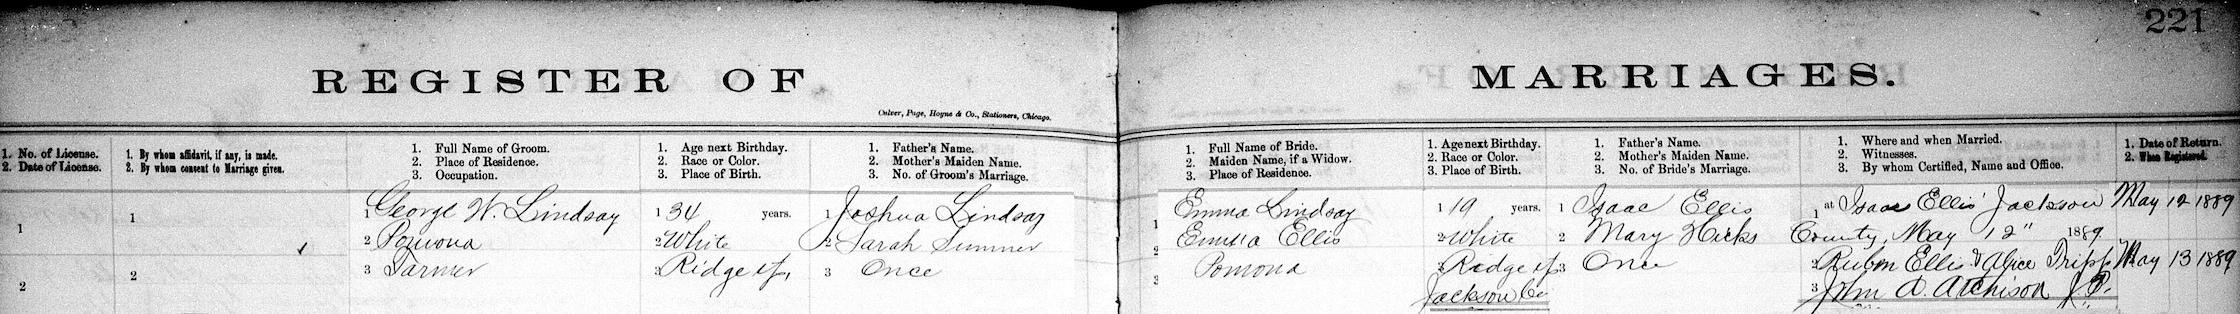 221
REGISTER OF MARRIAGES.
Culver, Page, Hoyne & Co., Stationers, Chicago.
1. No. of License.
2. Date of License.
1. By whom affidavit, if any, is made.
2. By whom consent to Marriage given.
1. Full Name of Groom.
2. Place of Residence.
3. Occupation.
1. Age next Birthday.
2. Race or Color.
3. Place of Birth.
1. Father's Name.
2. Mother's Maiden Name.
3. No. of Groom's Marriage.
1. Full Name of Bride.
2. Maiden Name, if a Widow.
3. Place of Residence.
1. Age next Birthday.
2. Race or Color.
3. Place of Birth.
1. Father's Name.
2. Mother's Maiden Name.
3. No. of Bride's Marriage.
1. Where and when Married.
2. Witnesses.
3. By whom Certified, Name and Office.
1. Date of Return.
2. When Registered.
1
2
1
2
1 George W. Lindsay
2 Pomona
3 Farmer
1 34 years.
2 White
3 Ridge of,
1 Joshua Lindsay
2 Sarah Sumner
3 Once
1 Emma Lindsay
2 Emma Ellis
3 Pomona
1 19 years.
2 White
3 Ridge of
Jackson Co
1 Isaac Ellis
2 Mary Hicks
3 Once
1 at Isaac Ellis' Jackson
County, May 12" 1889
2 Reuben Ellis & Alice Tripp
3 John A. Atchison J.P.
May 12 1889
May 13 1889